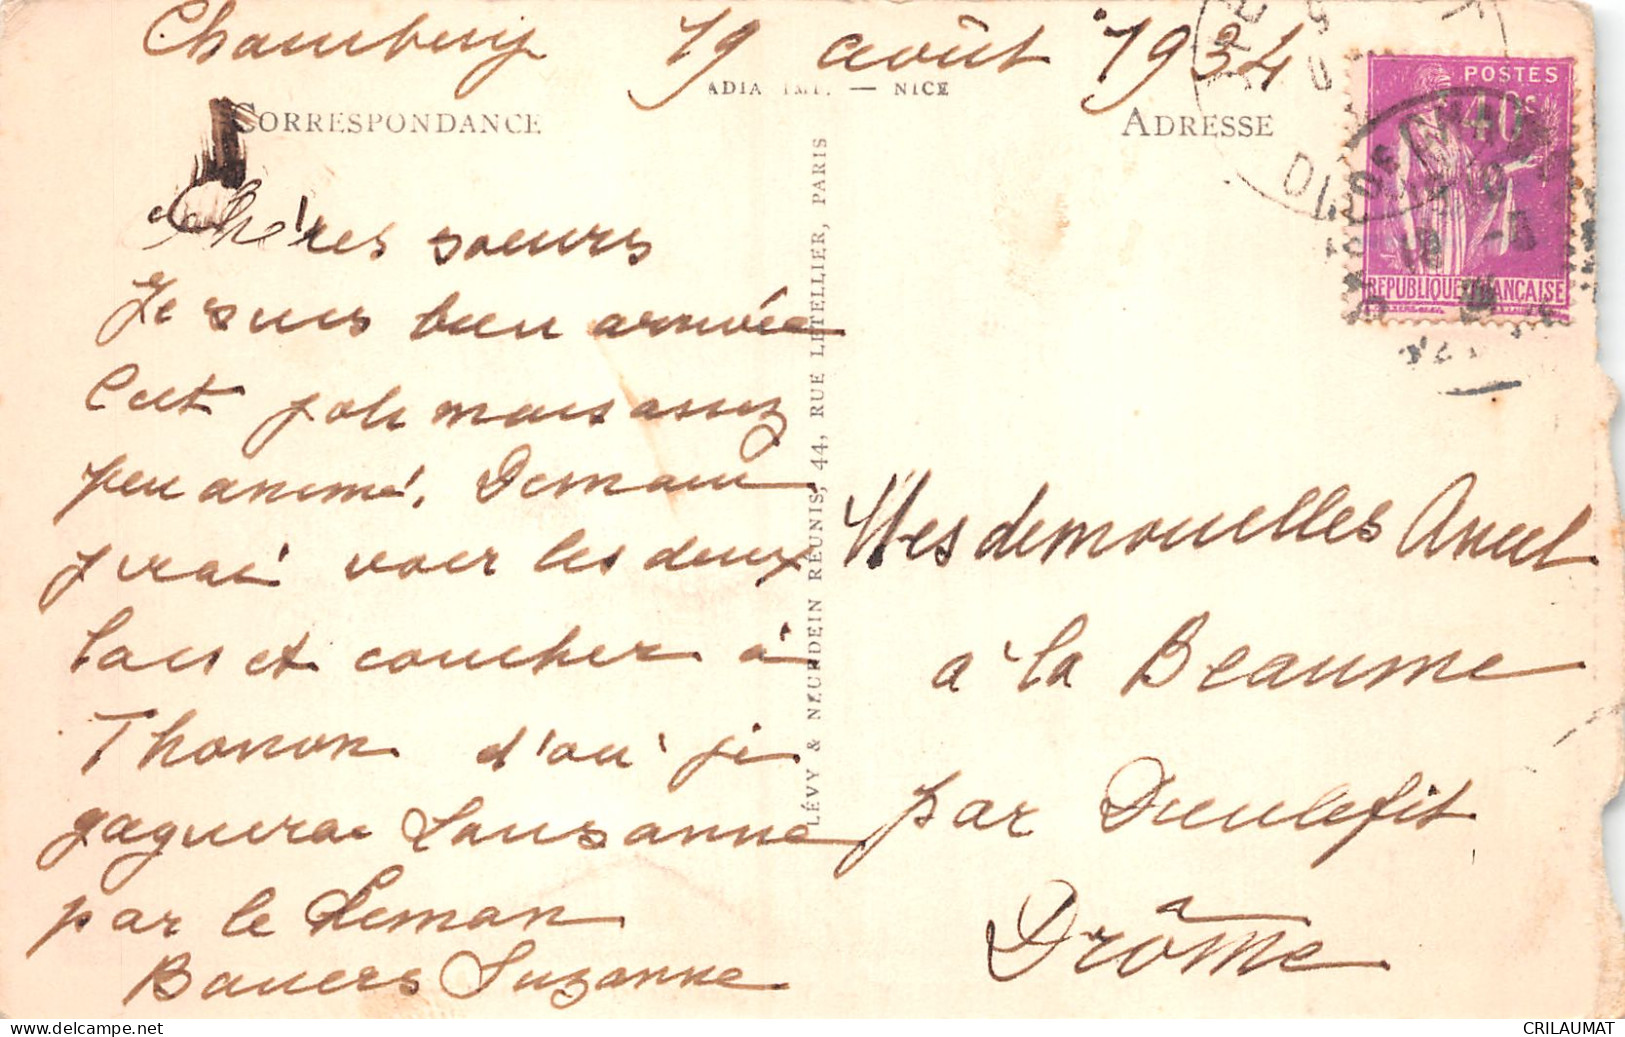 Chambery 19 août 1934
ADIA IMP. — NICE
CORRESPONDANCE
ADRESSE
POSTES
40c
REPUBLIQUE FRANÇAISE
Chères soeurs
Je suis bien arrivée
C'est joli mais assez
peu animé. Demain
j'irai voir les deux
lacs et coucher à
Thonon d'où je
gagnerai Lausanne
par le Leman
Baisers Suzanne
LÉVY & NEURDEIN RÉUNIS, 44, RUE LETELLIER, PARIS
Mesdemoiselles
à la Beaume
par Dieulefit
Drôme
CRILAUMAT